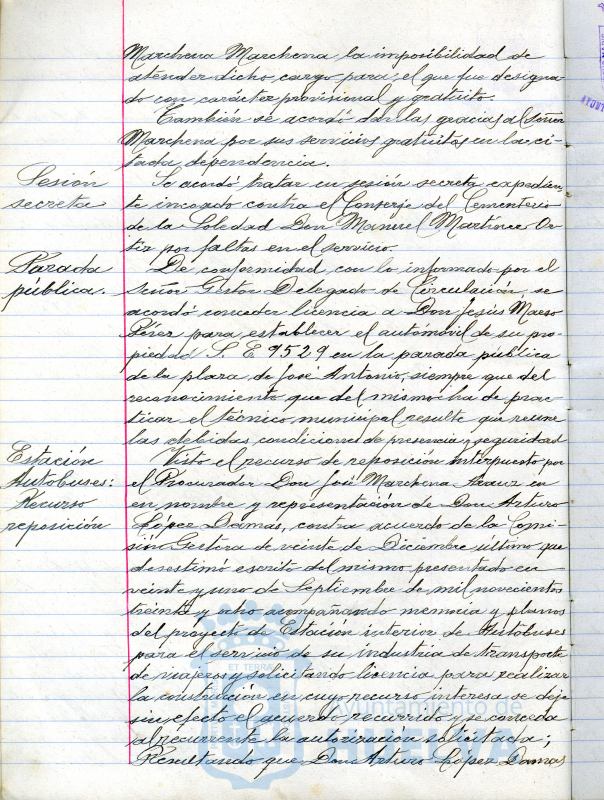 Marchena Marchena la imposibilidad de
atender dicho cargo para el que fue designa-
do con carácter provisional y gratuito.
También se acordó dar las gracias al Señor
Marchena por sus servicios gratuitos en la ci-
tada dependencia.
Sesión
secreta
Se acordó tratar en sesión secreta expedien-
te incoado contra el Conserje del Cementerio
de la Soledad Don Manuel Martínez Or-
tiz por faltas en el servicio.
Parada
pública.
De conformidad con lo informado por el
Señor Gestor Delegado de Circulación, se
acordó conceder licencia a Don Jesús Maeso
Pérez para establecer el automóvil de su pro-
piedad S. E 9529 en la parada pública
de la plaza de José Antonio, siempre que del
reconocimiento que del mismo ha de prac-
ticar el técnico municipal resulte que reune
las debidas condiciones de presencia y seguridad
Estación
Autobuses:
Recurso
reposición
Visto el recurso de reposición interpuesto por
el Procurador Don José Marchena en
en nombre y representación de Don Arturo
López Damas, contra acuerdo de la Comi-
sión Gestora de veinte de Diciembre último que
desestimó escrito del mismo presentado en
veinte y uno de Septiembre de mil novecientos
treinta y ocho acompañando memoria y planos
del proyecto de Estación interior de Autobuses
para el servicio de su industria de transporte
de viajeros y solicitando licencia para realizar
la construcción en cuyo recurso interesa se deje
sin efecto el acuerdo recurrido y se conceda
al recurrente la autorización solicitada;
Resultando que Don Arturo López Damas
ET TERRAE
Ayuntamiento de
HUELVA